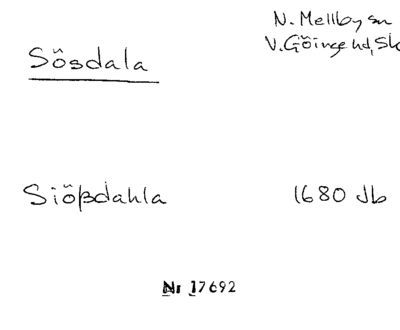 N. Mellby sn
Sösdala
V. Göinge hd, Sk
Siößdahla
1680 Jb
Nr 17692